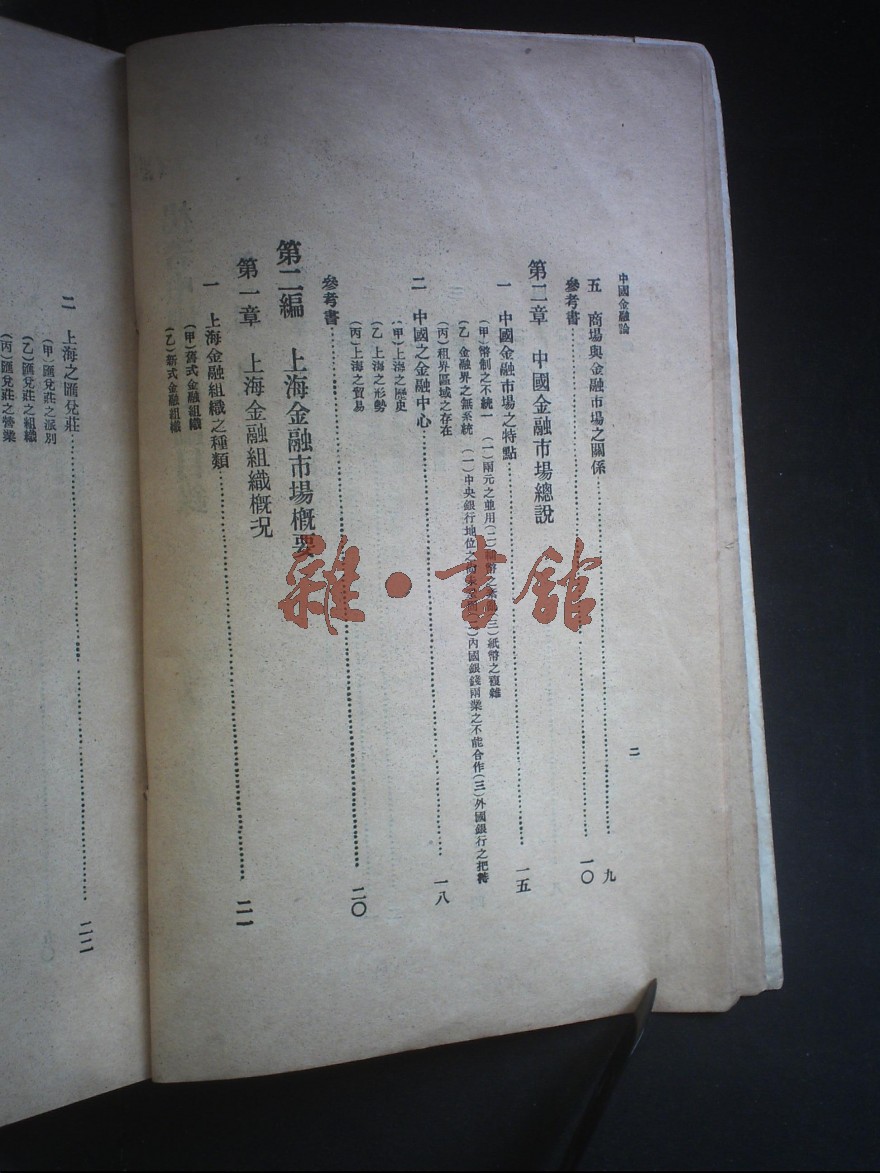 中國金融論
二
五 商場與金融市場之關係……九
參考書……一〇
第二章 中國金融市場總說
一 中國金融市場之特點……一五
(甲)幣制之不統一 (一)兩元之並用(二) 幣之 (三)紙幣之複雜
(乙)金融界之無系統 (一)中央銀行地位之 (二)內國銀錢兩業之不能合作(三)外國銀行之把持
(丙)租界區域之存在
二 中國之金融中心……一八
(甲)上海之歷史
(乙)上海之形勢
(丙)上海之貿易
參考書……二〇
第二編 上海金融市場概要
第一章 上海金融組織概況
一 上海金融組織之種類……二一
(甲)舊式金融組織
(乙)新式金融組織
二 上海之匯兌莊……二二
(甲)匯兌莊之派別
(乙)匯兌莊之組織
(丙)匯兌莊之營業
雜·書館